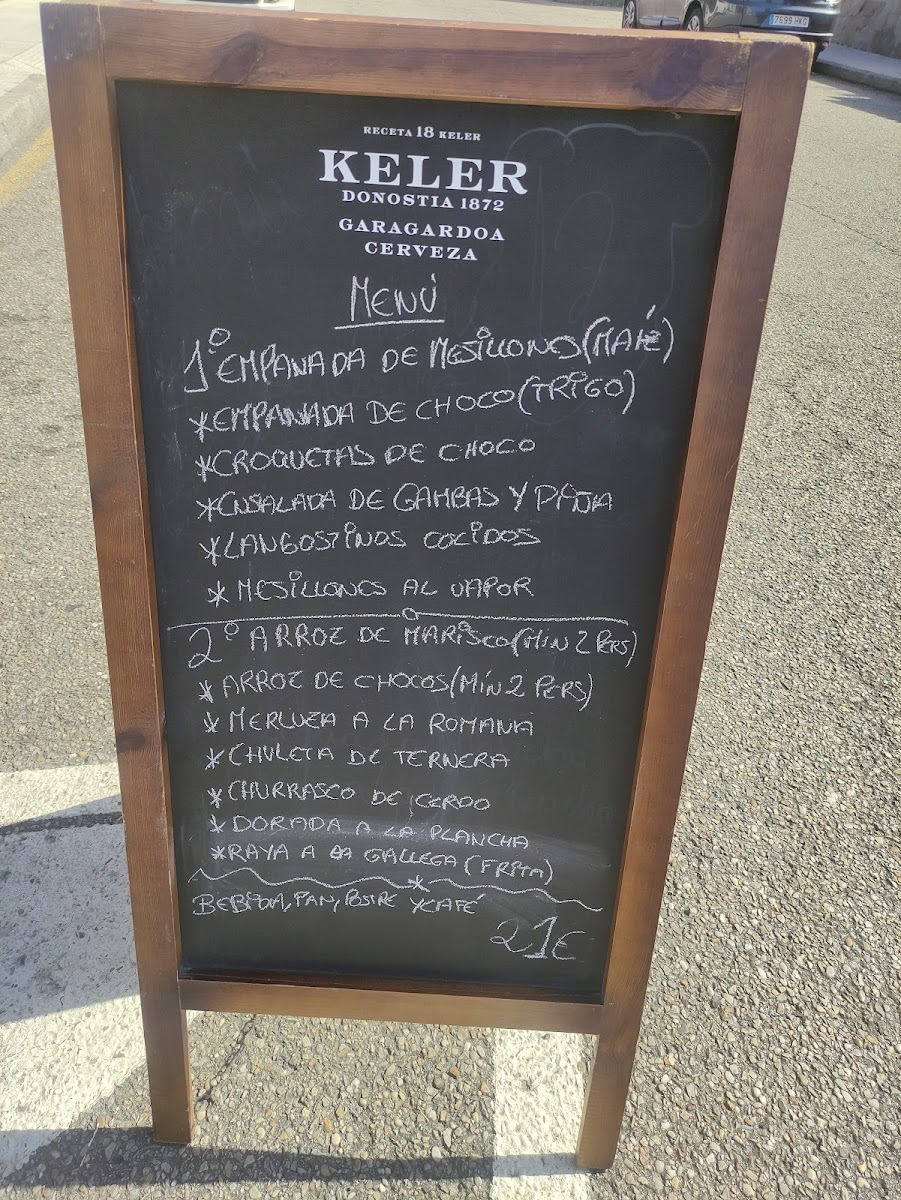 RECETA 18 KELER
KELER
DONOSTIA 1872
GARAGARDOA
CERVEZA
MENÚ
1º EMPANADA DE MESILLONES (MAIZ)
*EMPANADA DE CHOCO (TRIGO)
*CROQUETAS DE CHOCO
*ENSALADA DE GAMBAS Y PIÑA
*LANGOSTINOS COCIDOS
* MESILLONES AL VAPOR
2º ARROZ DE MARISCO (MIN 2 PERS)
* ARROZ DE CHOCOS (MÍN 2 PERS)
* MERLUZA A LA ROMANA
* CHULETA DE TERNERA
* CHURRASCO DE CERDO
* DORADA A LA PLANCHA
*RAYA A LA GALLEGA (FRITA)
BEBIDA, PAN, POSTRE Y CAFÉ
21€
7699 HKG